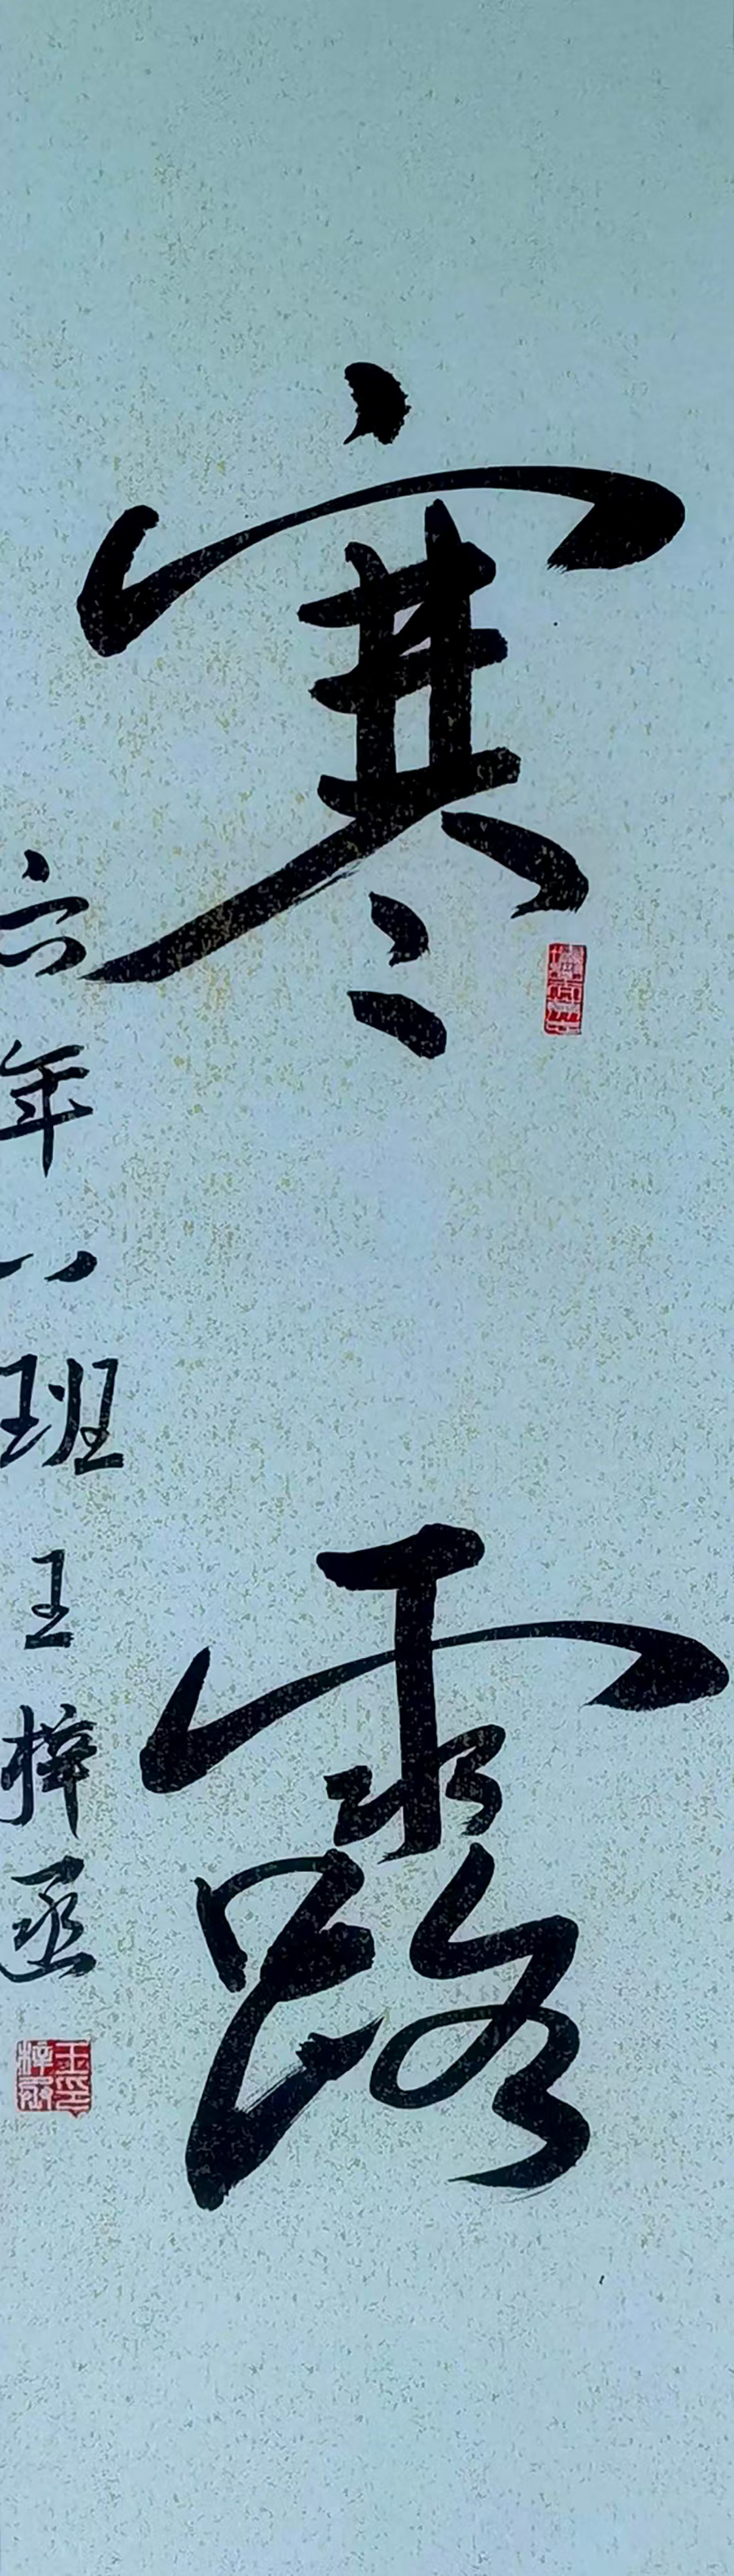 寒露
六年八班 王梓丞